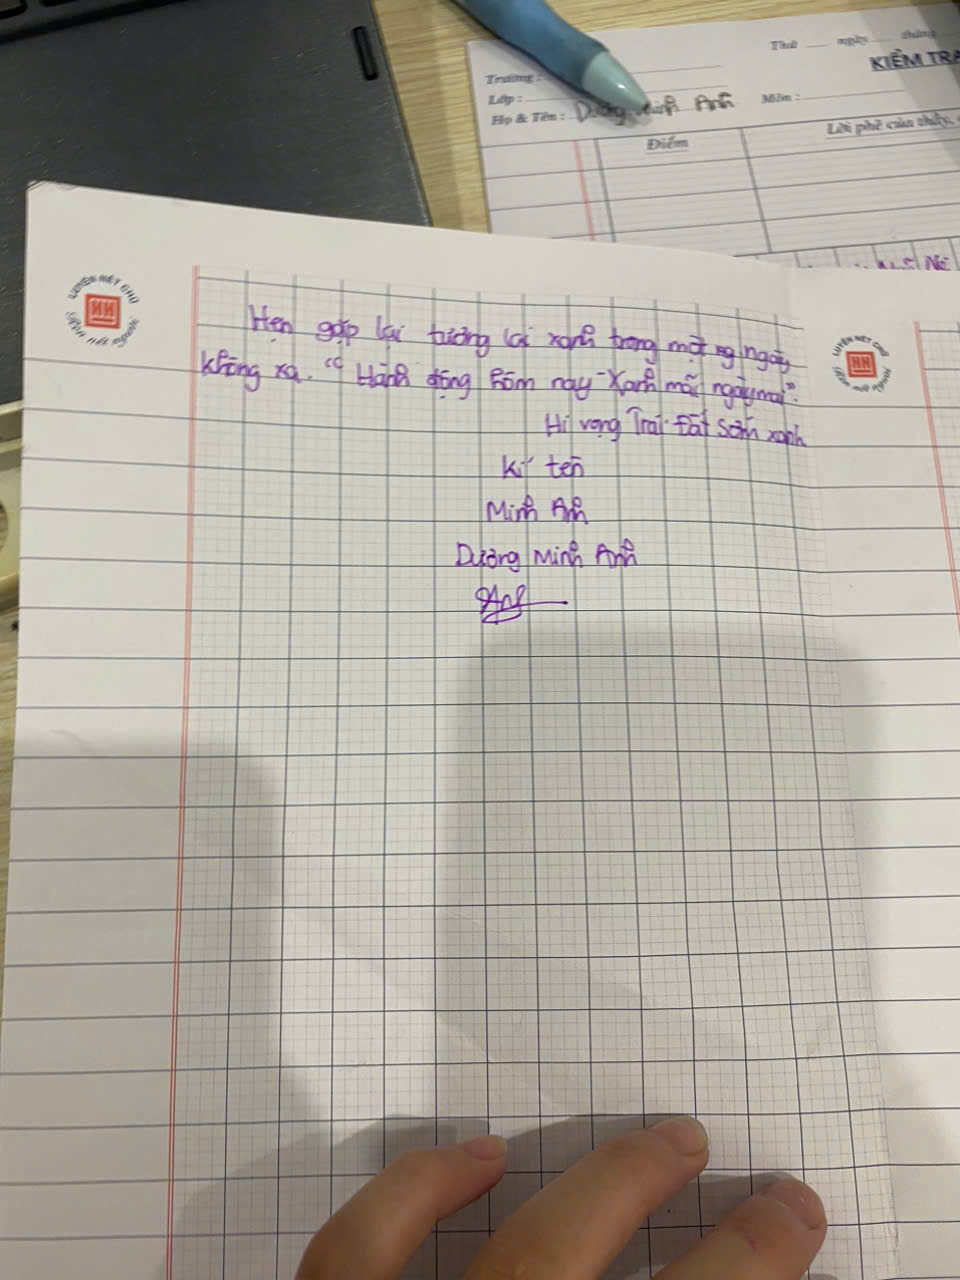 Thứ ngày tháng
KIỂM TRA
Trường :
Lớp :
Môn :
Họ & Tên : Dương Minh Anh
Điểm
Lời phê của thầy,
LUYỆN NÉT CHỮ
HH
Rèn nết người
Hẹn gặp lại tương lai xanh trong một ng ngày
không xa. "Hành động hôm nay - Xanh mãi ngày mai".
Hi vọng Trái Đất sớm xanh
Kí tên
Minh Anh
Dương Minh Anh
LUYỆN NÉT CHỮ
HH
Rèn nết người